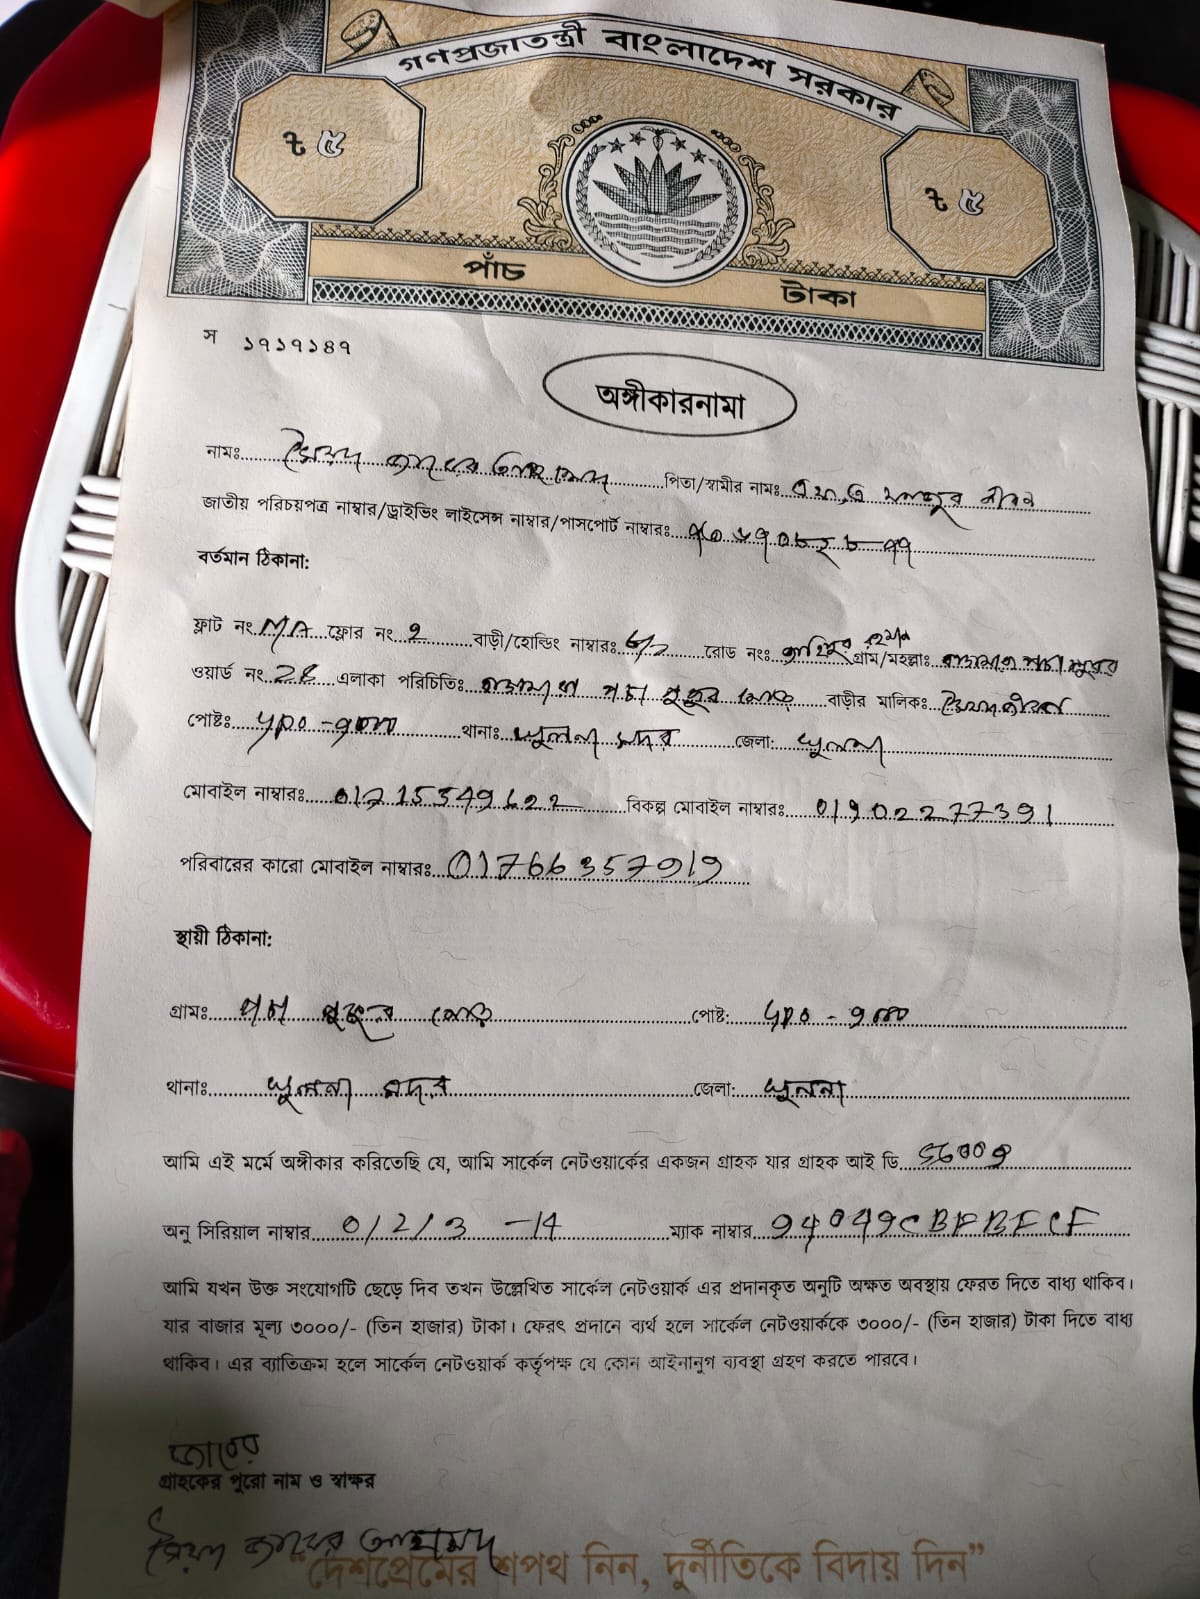 গণপ্রজাতন্ত্রী বাংলাদেশ সরকার
৳ ৫ ৳ ৫
পাঁচ টাকা
স ১৭১৭১৪৭
অঙ্গীকারনামা
নামঃ সৈয়দ জাবের আহমেদ পিতা/স্বামীর নামঃ
জাতীয় পরিচয়পত্র নাম্বার/ড্রাইভিং লাইসেন্স নাম্বার/পাসপোর্ট নাম্বারঃ
বর্তমান ঠিকানা:
ফ্লাট নং N/A ফ্লোর নং ২ বাড়ী/হোল্ডিং নাম্বারঃ ৬/২ রোড নং গ্রাম/মহল্লাঃ
ওয়ার্ড নং এলাকা পরিচিতিঃ পচা পুকুর মোড় বাড়ীর মালিকঃ
পোষ্টঃ GPO - ৯০০০ থানাঃ খুলনা সদর জেলা: খুলনা
মোবাইল নাম্বারঃ 01715549622 বিকল্প মোবাইল নাম্বারঃ 01902277391
পরিবারের কারো মোবাইল নাম্বারঃ 01766357919
স্থায়ী ঠিকানা:
গ্রামঃ পচা পুকুর মোড় পোষ্ট: GPO - ৯০০০
থানাঃ খুলনা সদর জেলা: খুলনা
আমি এই মর্মে অঙ্গীকার করিতেছি যে, আমি সার্কেল নেটওয়ার্কের একজন গ্রাহক যার গ্রাহক আই ডি
অনু সিরিয়াল নাম্বার 0/2/3 -14 ম্যাক নাম্বার 94049CBFBFCF
আমি যখন উক্ত সংযোগটি ছেড়ে দিব তখন উল্লেখিত সার্কেল নেটওয়ার্ক এর প্রদানকৃত অনুটি অক্ষত অবস্থায় ফেরত দিতে বাধ্য থাকিব।
যার বাজার মূল্য ৩০০০/- (তিন হাজার) টাকা। ফেরৎ প্রদানে ব্যর্থ হলে সার্কেল নেটওয়ার্ককে ৩০০০/- (তিন হাজার) টাকা দিতে বাধ্য
থাকিব। এর ব্যতিক্রম হলে সার্কেল নেটওয়ার্ক কর্তৃপক্ষ যে কোন আইনানুগ ব্যবস্থা গ্রহণ করতে পারবে।
জাবের
গ্রাহকের পুরো নাম ও স্বাক্ষর
সৈয়দ জাবের আহমেদ
“দেশপ্রেমের শপথ নিন, দুর্নীতিকে বিদায় দিন”